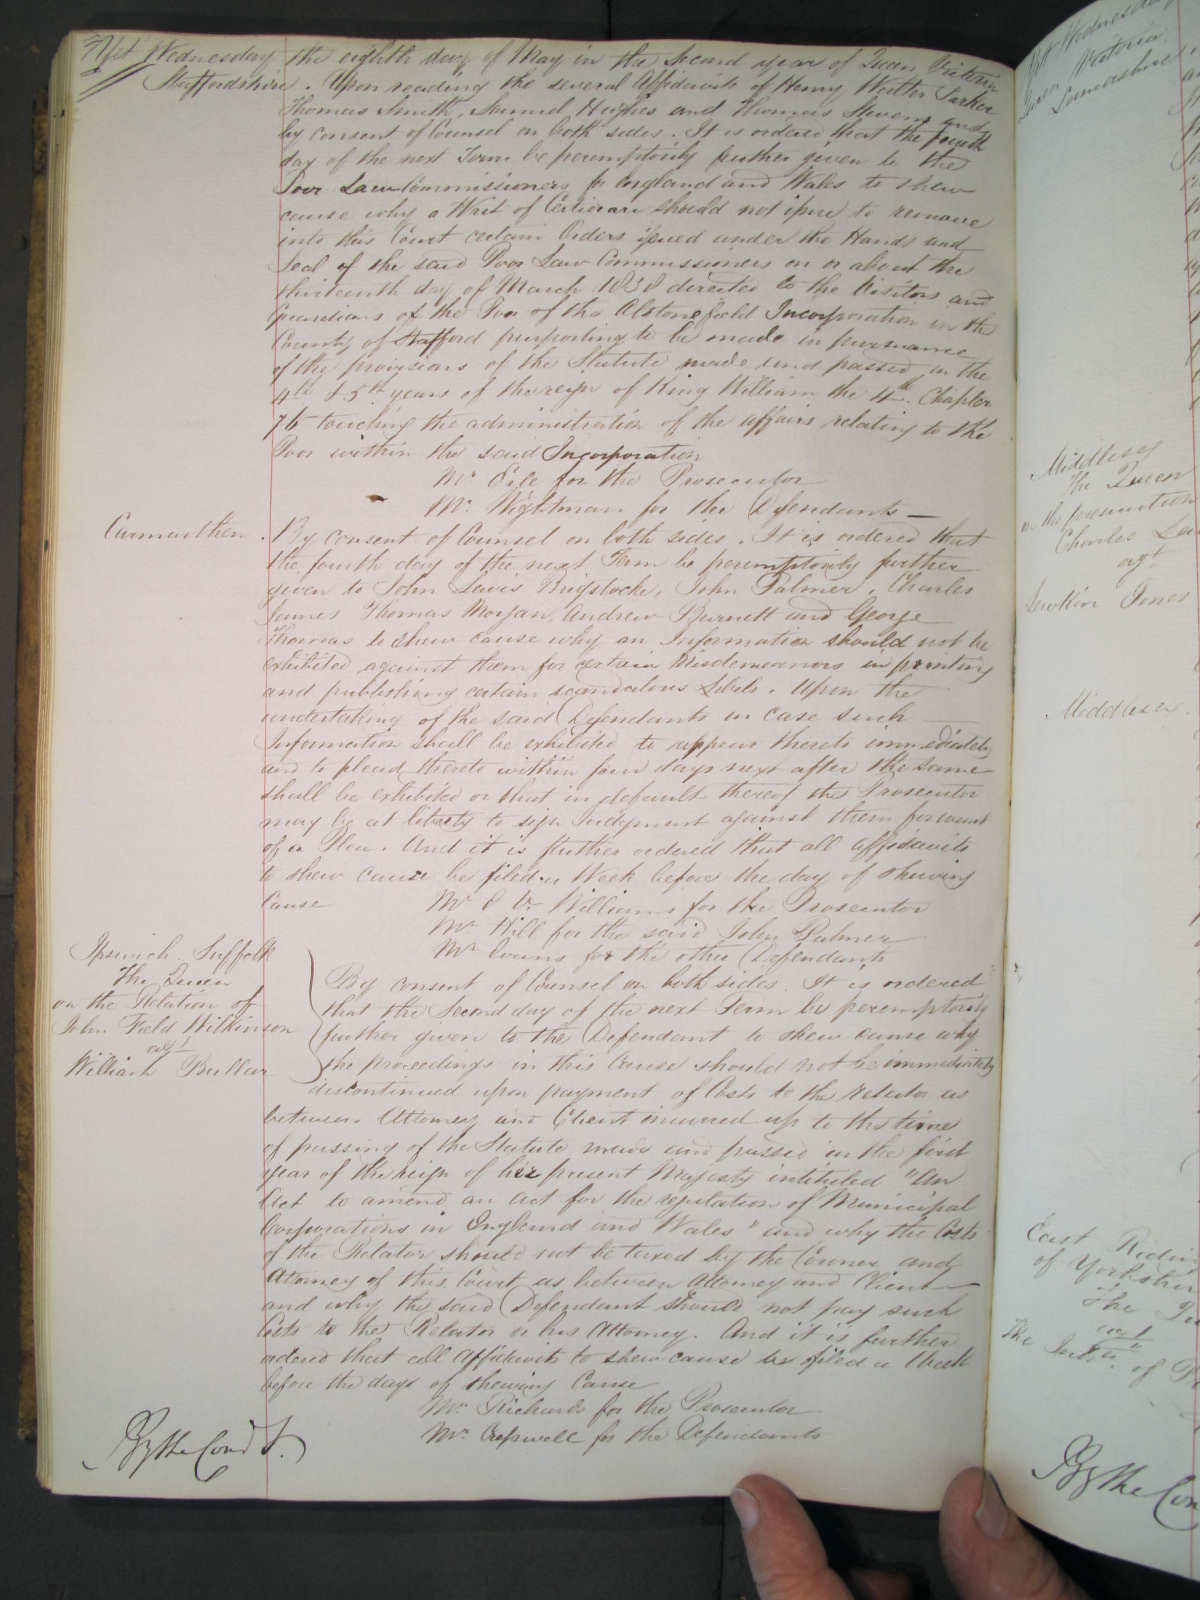 Yet Wednesday the eighth day of May in the Second year of Queen Victoria
Staffordshire. Upon reading the several Affidavits of Henry Walter Parker
Thomas Smith, Samuel Hughes and Thomas Stevens and
by consent of Counsel on both sides. It is ordered that the fourth
day of the next Term be peremptorily further given to the
Poor Law Commissioners for England and Wales to shew
cause why a Writ of Certiorari should not issue to remove
into this Court certain Orders issued under the Hands and
Seal of the said Poor Law Commissioners on or about the
thirteenth day of March 1838 directed to the Visitors and
Guardians of the Poor of the Alstonefield Incorporation in the
County of Stafford purporting to be made in pursuance
of the provisions of the Statute made and passed in the
4th & 5th years of the reign of King William the 4th. Chapter
76 touching the administration of the affairs relating to the
Poor within the said Incorporation
Mr. for the Prosecutor
Mr. Wightman for the Defendants
Carmarthen. By consent of Counsel on both sides. It is ordered that
the fourth day of the next Term be peremptorily further
given to John Lewis Brigstocke, John Palmer, Charles
James Thomas Morgan, Andrew Burnett and George
Thomas to shew cause why an Information should not be
exhibited against them for certain Misdemeanors in printing
and publishing certain scandalous Libels. Upon the
undertaking of the said Defendants in case such
Information shall be exhibited to appear thereto immediately
and to plead thereto within four days next after the same
shall be exhibited or that in default thereof the Prosecutor
may be at liberty to sign Judgment against them for want
of a Plea. And it is further ordered that all affidavits
to shew cause be filed a Week before the day of shewing
Cause
Mr. Williams for the Prosecutor
Mr. Hill for the said John Palmer
Mr. Evans for the other Defendants
Ipswich Suffolk
The Queen
on the Relation of
John Field Wilkinson
agt
William Bullar
By consent of Counsel on both sides. It is ordered
that the Second day of the next Term be peremptorily
further given to the Defendant to shew cause why
the proceedings in this Cause should not be immediately
discontinued upon payment of Costs to the relator as
between Attorney and Client incurred up to the time
of passing of the Statute made and passed in the first
year of the reign of her present Majesty intituled "An
Act to amend an act for the regulation of Municipal
Corporations in England and Wales" and why the Costs
of the Relator should not be taxed by the Coroner and
Attorney of this Court as between Attorney and Client
and why the said Defendant should not pay such
Costs to the Relator or his Attorney. And it is further
ordered that all Affidavits to shew cause be filed a Week
before the day of shewing Cause
Mr. Richards for the Prosecutor
Mr. Cresswell for the Defendants
By the Court
Victoria
Lancashire
Middlesex
The Queen
on the prosecution
Charles
agt.
Jones
Middlesex
East Riding
of Yorkshire
The
agt
The of
By the